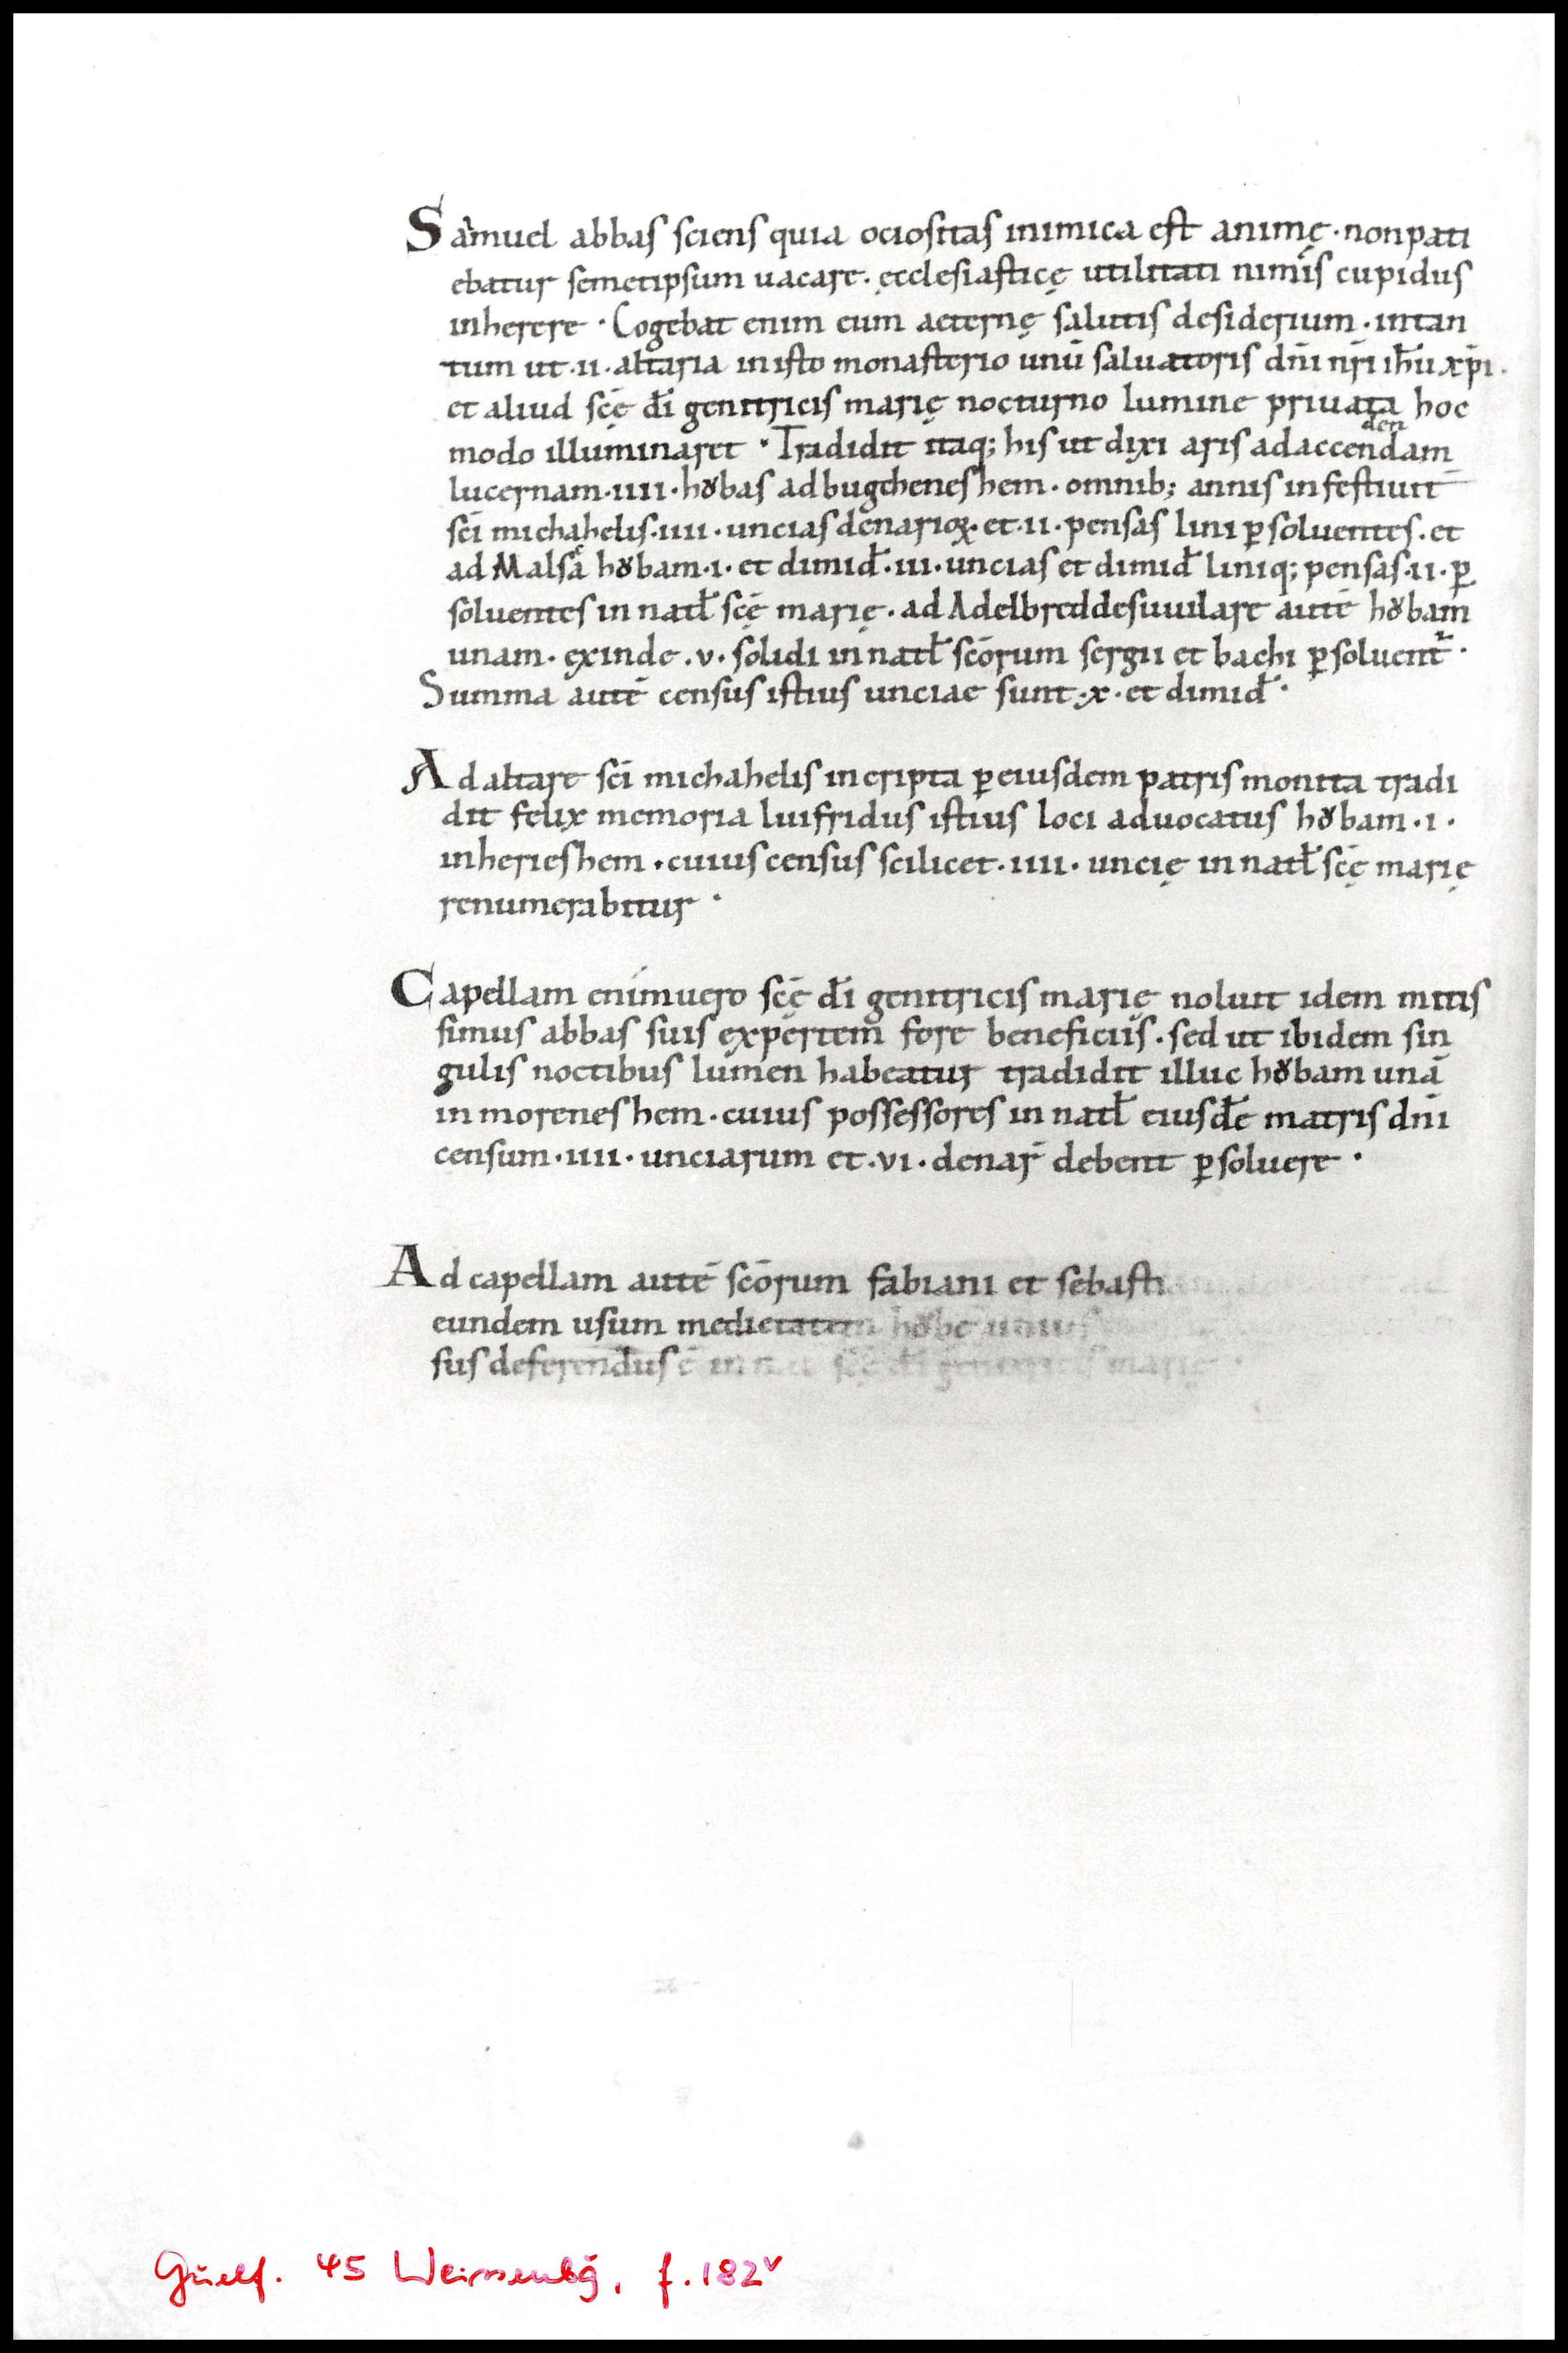 Samuel abbas sciens quia ociositas inimica est animę · non pati
ebatur semetipsum uacare · ęcclesiasticę utilitati nimis cupidus
inherere · Cogebat enim eum aeternę salutis desiderium · intan
tum ut · ii · altaria in isto monasterio unū saluatoris dn̄i nr̄i ih̄u xp̄i ·
et aliud scę̄ dī genitricis marię nocturno lumine priuata hoc
modo illuminaret · Tradidit itaq; his ut dixi aris ad accendam
den
lucernam · iiii · hȣbas ad bugcheneshem · omnib; annis in festiuit̄
scī michahelis · iiii · uncias denarioꝝ · et · ii · pensas lini ꝑsoluentes · et
ad Malsā hȣbam · i · et dimid̄ · iii · uncias et dimid̄ liniq; pensas · ii · ꝑ
soluentes in natł scę̄ marię · ad Adelbreddesuuilare autē hȣbam
unam · exinde · v · solidi in natł scōrum sergii et bachi ꝑsoluent᷑ ·
Summa autē census istius unciae sunt · x · et dimid̄ ·
Ad altare scī michahelis in cripta ꝑ eiusdem patris monita tradi
dit felix memoria liutfridus istius loci aduocatus hȣbam · i ·
in herieshem · cuius census scilicet · iiii · uncię in natł scę̄ marię
renumerabitur ·
Capellam enimuero scę̄ dī genitricis marię noluit idem mitis
simus abbas suis expertem fore beneficiis · sed ut ibidem sin
gulis noctibus lumen habeatur tradidit illuc hȣbam unā
in moreneshem · cuius possessores in natł eiusdē matris dn̄i
censum · iiii · unciarum et · vi · denar̄ debent ꝑsoluere ·
Ad capellam autē scōrum fabiani et sebasti
eundem usum medietatem hȣbe unius
sus deferendus ē in nat scę̄ dī genitricis marię ·
Guelf. 45 Weissenbg, f. 182v